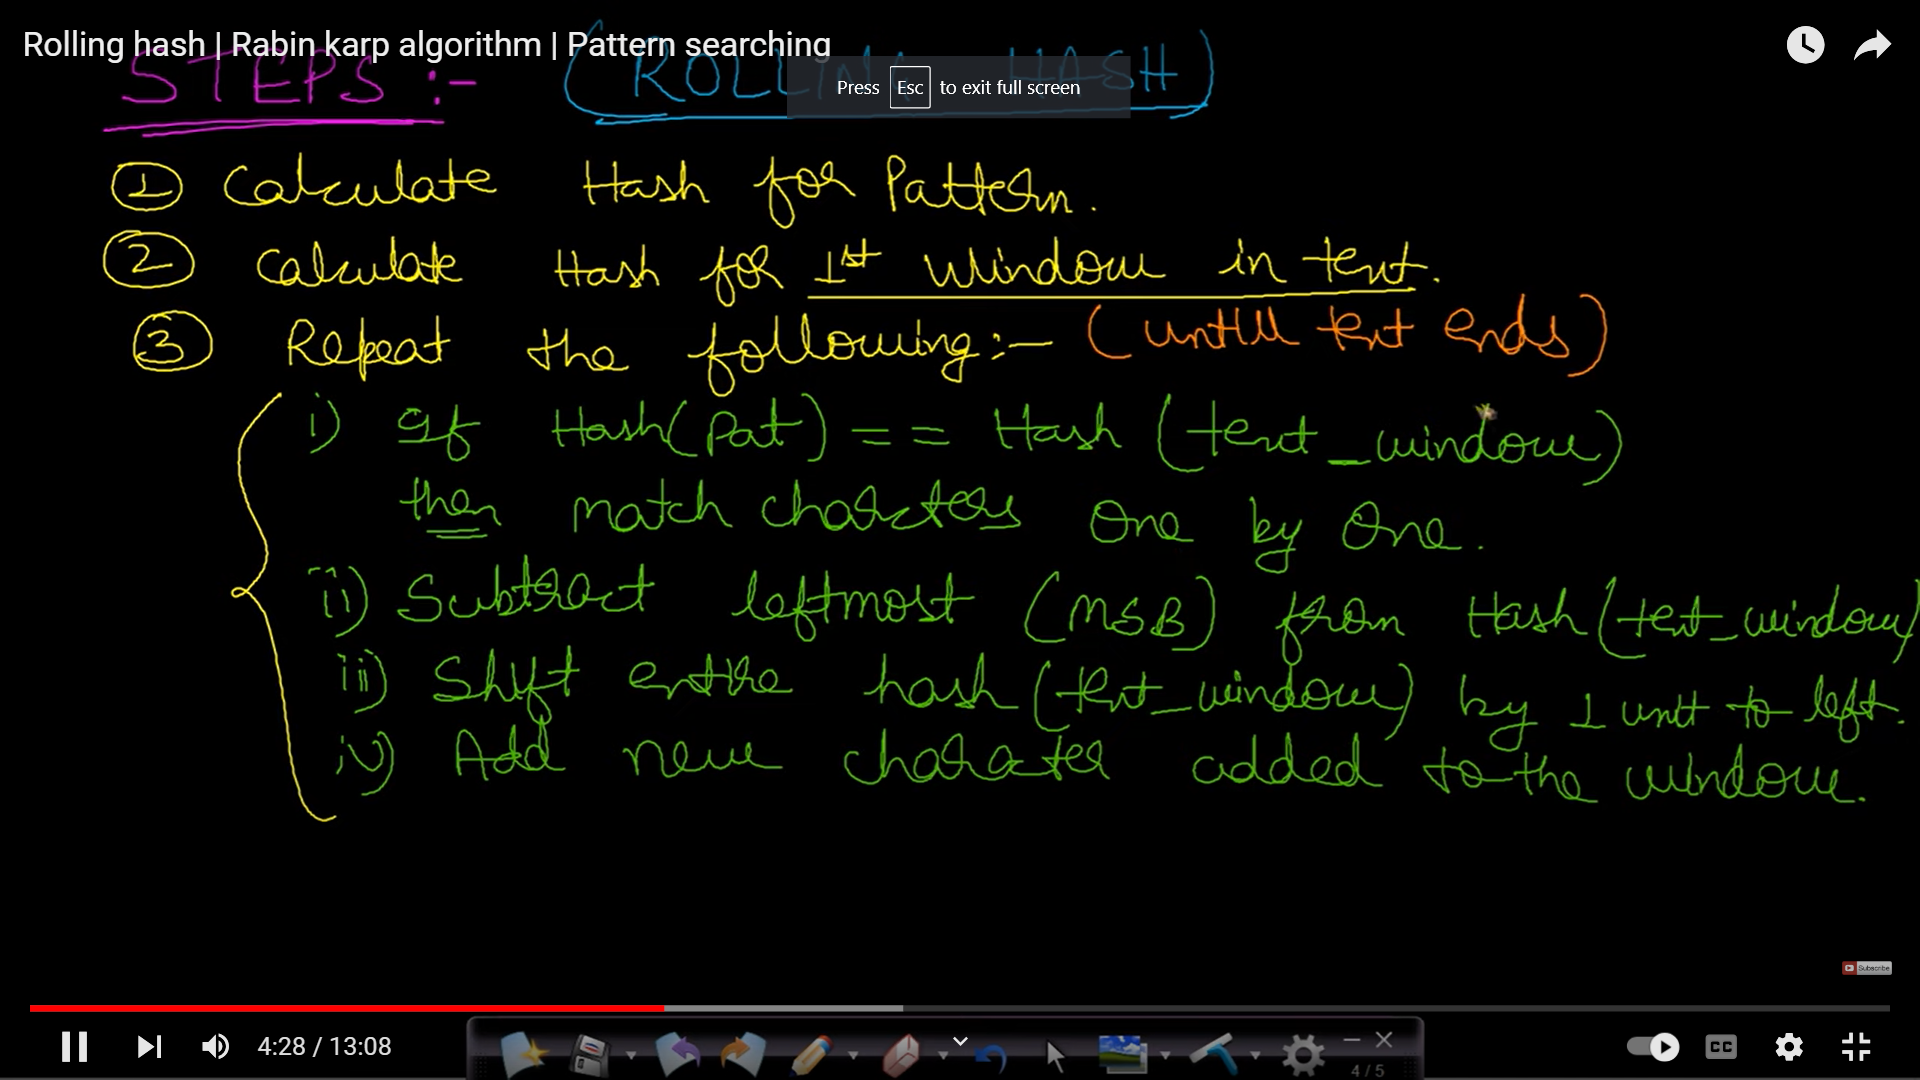 Rolling hash | Rabin karp algorithm | Pattern searching
STEPS :- (ROLLING HASH)
Press Esc to exit full screen
1 Calculate Hash for Pattern.
2 Calculate Hash for 1st Window in text.
3 Repeat the following :- (untill text ends)
i) If Hash(Pat) == Hash (text_window)
then match characters one by one.
ii) Subtract leftmost (MSB) from Hash(text_window)
iii) Shift entire hash (text_window) by 1 unit to left.
iv) Add new character added to the window.
Subscribe
4:28 / 13:08
CC
4/5